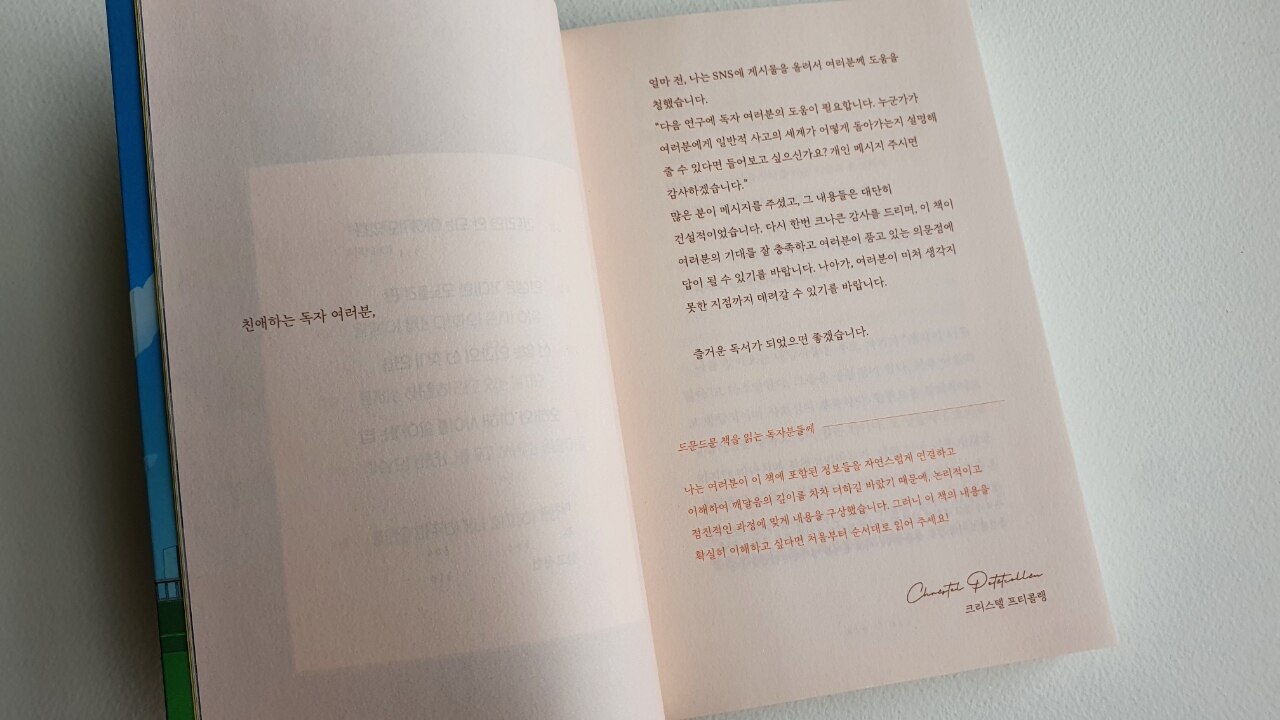 친애하는 독자 여러분,
얼마 전, 나는 SNS에 게시물을 올려서 여러분께 도움을
청했습니다.
"다음 연구에 독자 여러분의 도움이 필요합니다. 누군가가
여러분에게 일반적 사고의 세계가 어떻게 돌아가는지 설명해
줄 수 있다면 들어보고 싶으신가요? 개인 메시지 주시면
감사하겠습니다."
많은 분이 메시지를 주셨고, 그 내용들은 대단히
건설적이었습니다. 다시 한번 크나큰 감사를 드리며, 이 책이
여러분의 기대를 잘 충족하고 여러분이 품고 있는 의문점에
답이 될 수 있기를 바랍니다. 나아가, 여러분이 미처 생각지
못한 지점까지 데려갈 수 있기를 바랍니다.
즐거운 독서가 되었으면 좋겠습니다.
드문드문 책을 읽는 독자분들께
나는 여러분이 이 책에 포함된 정보들을 자연스럽게 연결하고
이해하여 깨달음의 깊이를 차차 더하길 바랐기 때문에, 논리적이고
점진적인 과정에 맞게 내용을 구상했습니다. 그러니 이 책의 내용을
확실히 이해하고 싶다면 처음부터 순서대로 읽어 주세요!
크리스텔 프티콜랭